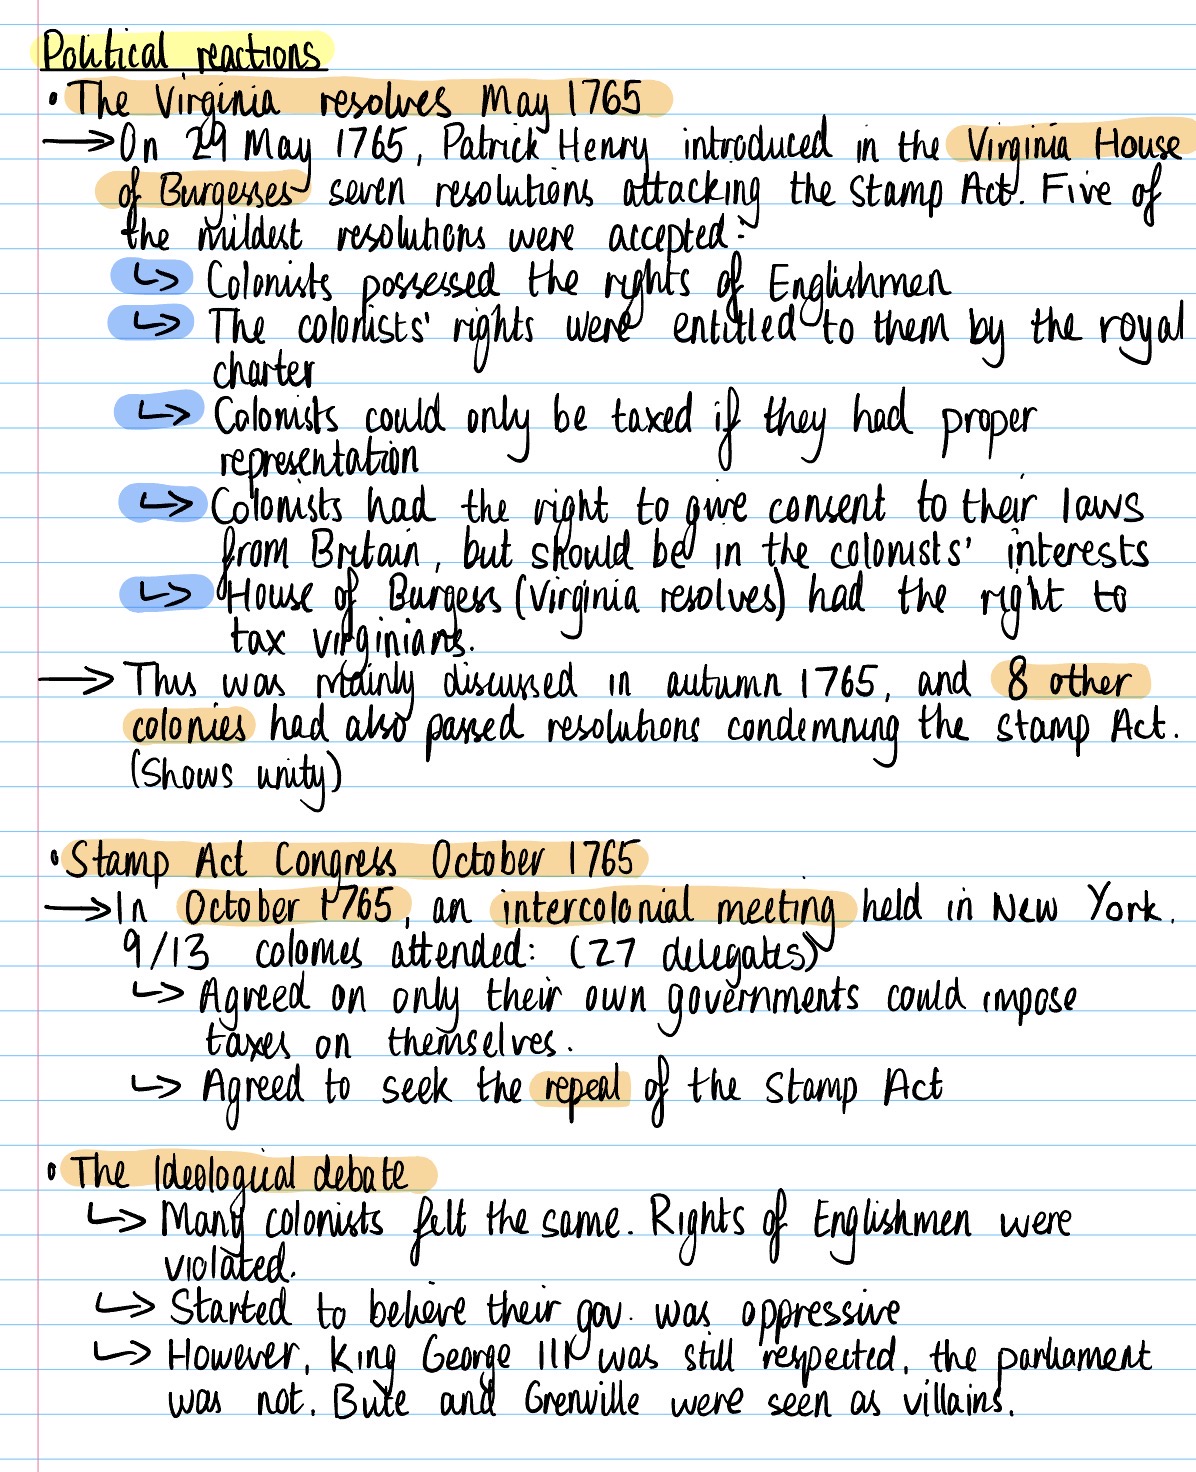 Political reactions
• The Virginia resolves May 1765
→ On 29 May 1765, Patrick Henry introduced in the Virginia House
of Burgesses seven resolutions attacking the Stamp Act. Five of
the mildest resolutions were accepted:
↳ Colonists possessed the rights of Englishmen
↳ The colonists' rights were entitled to them by the royal
charter
↳ Colonists could only be taxed if they had proper
representation
↳ Colonists had the right to give consent to their laws
from Britain, but should be in the colonists' interests
↳ House of Burgess (Virginia resolves) had the right to
tax virginians.
→ This was mainly discussed in autumn 1765, and 8 other
colonies had also passed resolutions condemning the Stamp Act.
(Shows unity)
• Stamp Act Congress October 1765
→ In October 1765, an intercolonial meeting held in New York.
9/13 colonies attended: (27 delegates)
↳ Agreed on only their own governments could impose
taxes on themselves.
↳ Agreed to seek the repeal of the Stamp Act
• The Ideological debate
↳ Many colonists felt the same. Rights of Englishmen were
violated.
↳ Started to believe their gov. was oppressive
↳ However, King George III was still respected, the parliament
was not. Bute and Grenville were seen as villains.